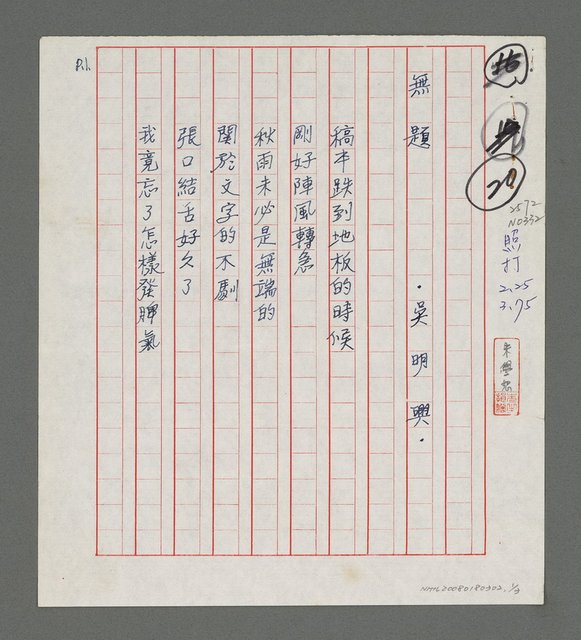 無題
·吳明興·
稿本跌到地板的時候
剛好陣風轉急
秋雨未必是無端的
関於文字的不馴
張口結舌好久了
我竟忘了怎樣發脾氣
P.1.
20
2572
NO332
照打
2.25
3.75
NMTL20080180302, 1/3